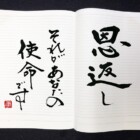 恩返し
それがあなたの
使命
です